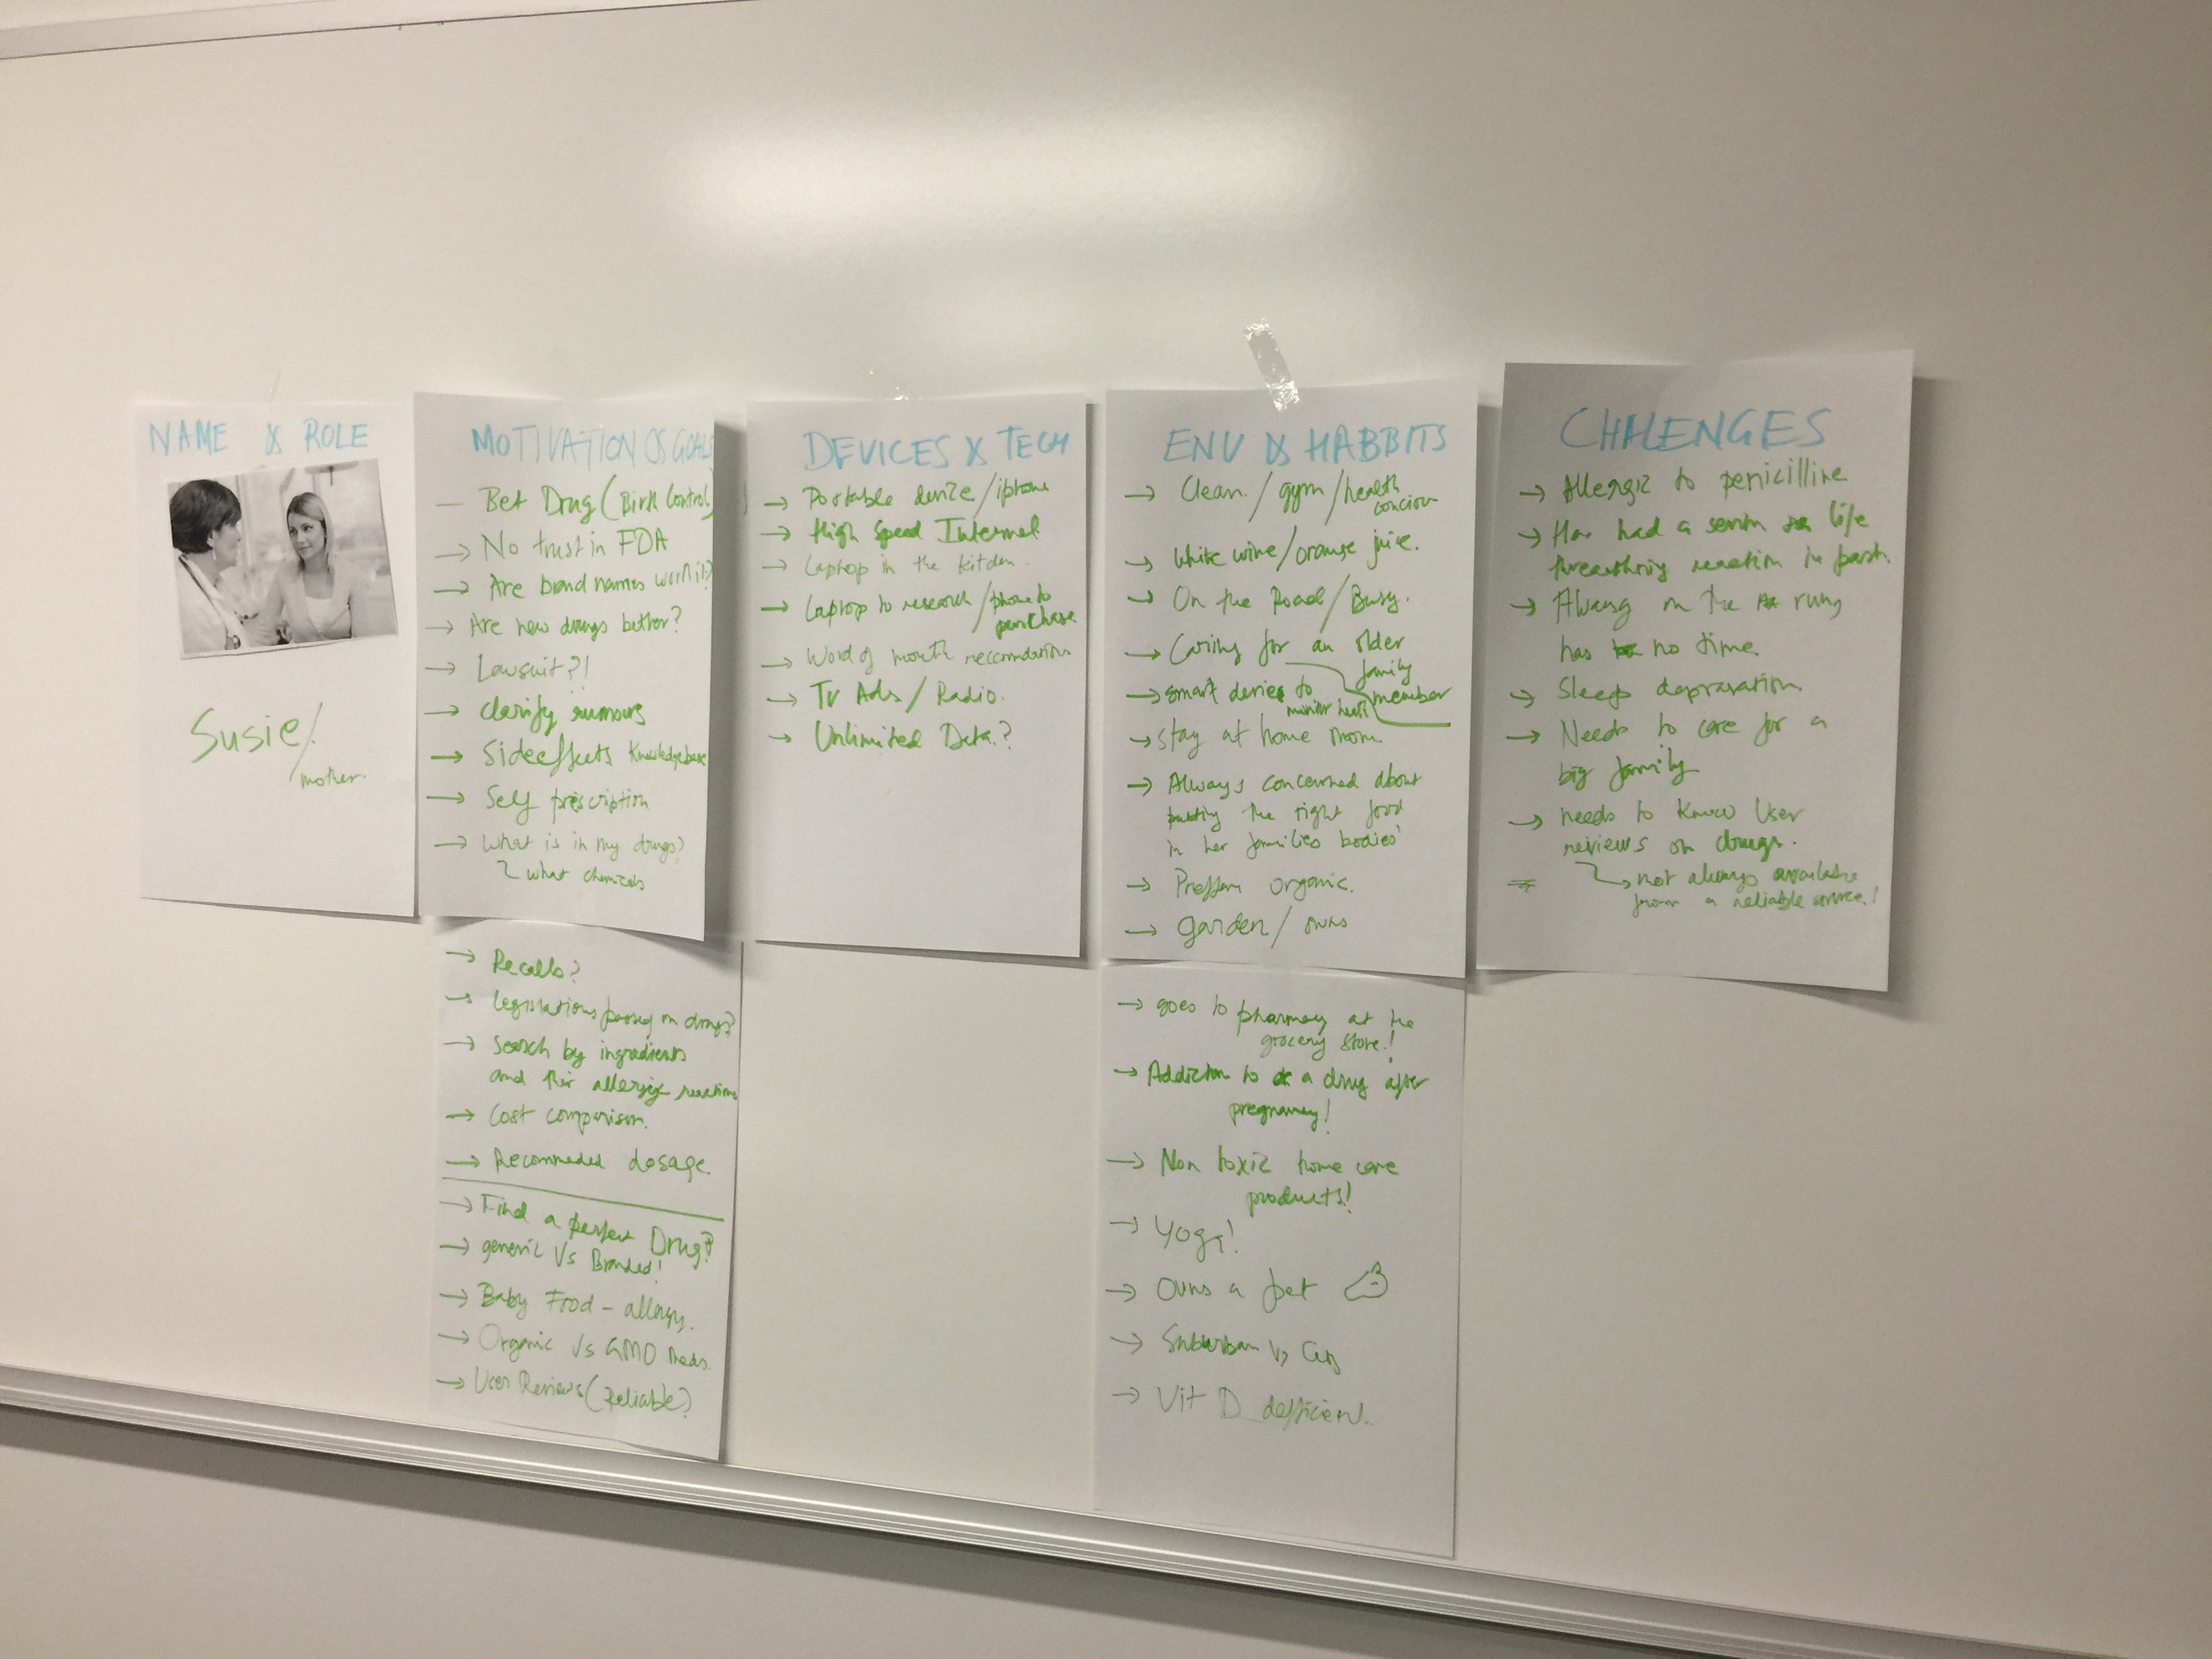 NAME & ROLE
Susie/
mother.
MOTIVATION & GOALS
Bet Drug (Birth Control)
→ No trust in FDA
→ Are brand names worth it?
→ Are new drugs better?
→ Lawsuit?!
→ clarify rumours
→ Sideeffects knowledgebase
→ Self prescription
→ What is in my drugs?
what chemicals
→ Recalls?
→ legislations passed on drugs?
→ Search by ingredients
and their allergic reactions
→ Cost comparison.
→ Recommeded dosage.
→ Find a perfect Drug?
→ generic Vs Branded!
→ Baby Food - allergy.
→ Organic Vs GMO Meds.
→ User Reviews (Reliable?)
DEVICES & TECH
→ Portable device/iphone
→ High Speed Internet
→ Laptop in the kitchen.
→ Laptop to research/phone to
purchase
→ Word of mouth
→ TV Ads/Radio.
→ Unlimited Data.?
ENV & HABBITS
→ Clean./gym/health
→ White wine/orange juice.
→ On the Road/Busy.
→ Caring for an older
family
member
→ smart device to
monitor
→ stay at home mom.
→ Always concerned about
putting the right food
in her families bodies'
→ organic.
→ garden/owns
→ goes to pharmacy at the
grocery store.!
→ Addiction to a drug after
pregnancy!
→ Non toxic home care
products!
→ Yoga!
→ Owns a pet
→ Suburban Vs City
→ Vit D defficient.
CHALENGES
→ Allergic to penicilline
→ Has had a life
reaction in past.
→ Always on the rung
has no time.
→ Sleep depravation
→ Needs to care for a
big family
→ needs to know User
reviews on drugs.
→ not always available
from a reliable source.!